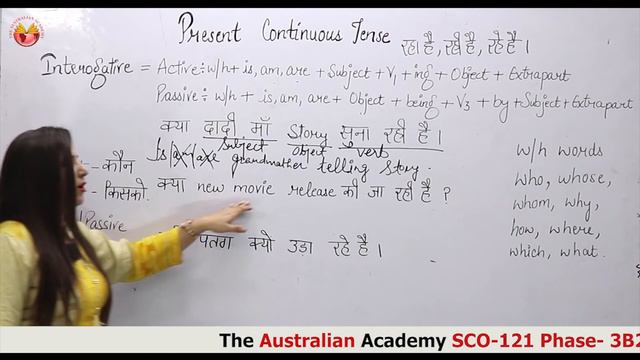 Present Continuous Tense रहा है, रही है, रहे है।
Interogative = Active:- w/h + is, am, are + Subject + V1 + ing + Object + Extrapart
Passive:- w/h + is, am, are + Object + being + V3 + by + Subject + Extrapart
क्या दादी माँ Story सुना रही है।
Subject object verb
Is/am/are grandmather telling Story.
- कौन
- किसको
क्या new movie release की जा रही है ?
Passive
पतग क्यो उड़ा रहे है।
w/h words
who, whose,
whom, why,
how, where,
which, what.
The Australian Academy SCO-121 Phase- 3B2